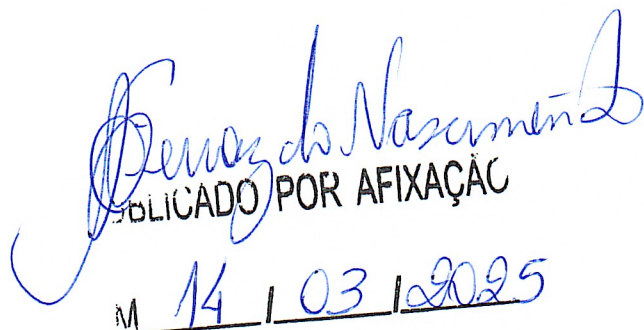 Ferraz do Nascimento
UBLICADO POR AFIXAÇÃO
M 14 / 03 / 2025